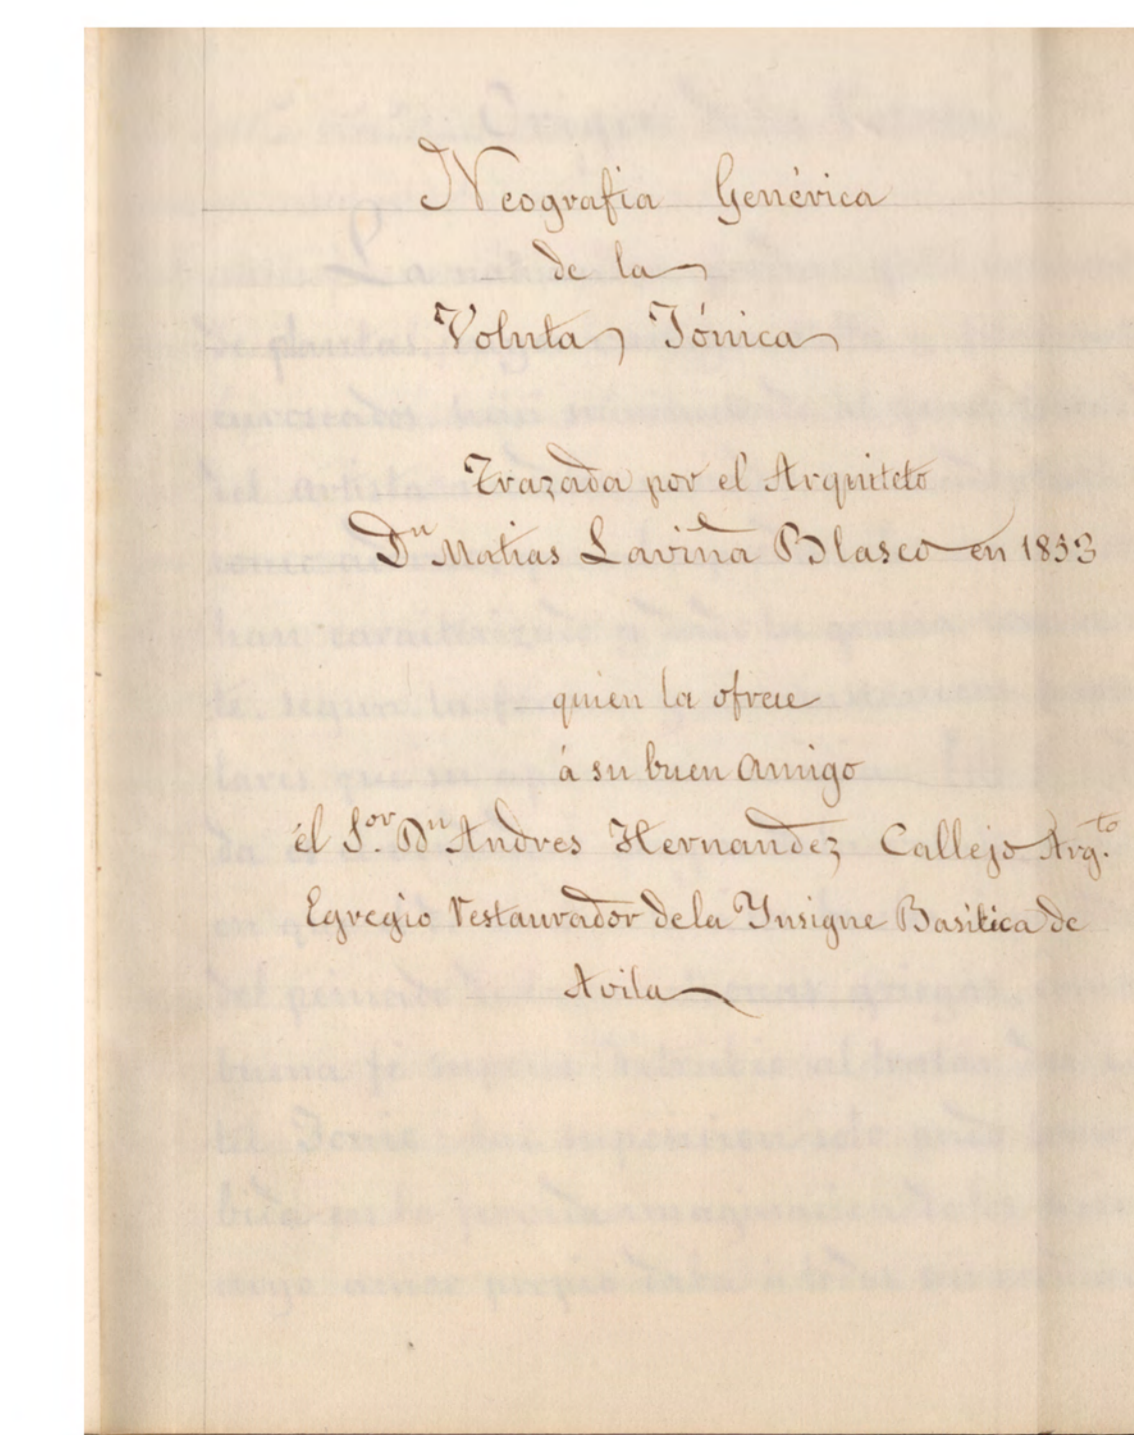 Neografia Genérica
de la
Voluta Jónica
Trazada por el Arquiteto
Dn Matias Laviña Blasco en 1853
quien la ofrece
á su buen amigo
él Sor. Dn Andres Hernandez Callejo Arq.to
Egregio restaurador de la Ynsigne Basilica de
Avila